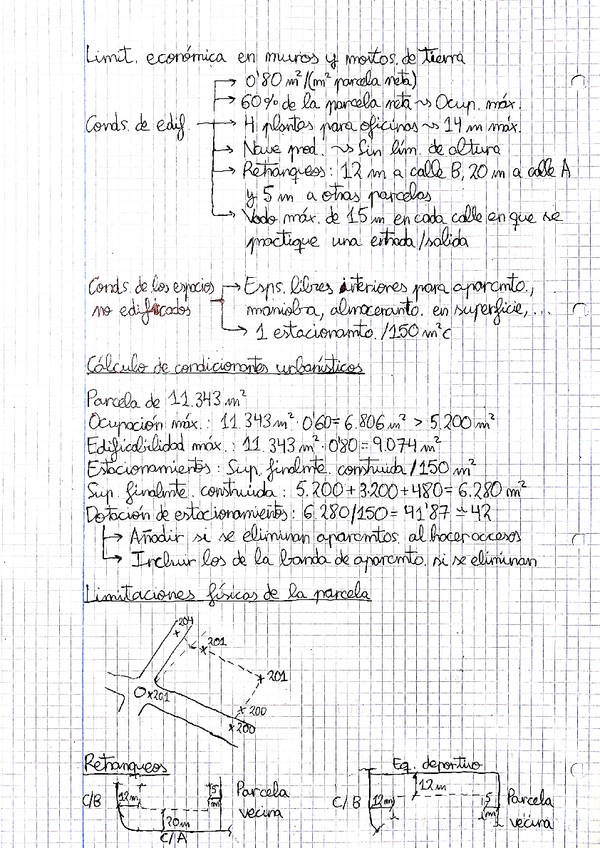 Limit. económica en muros y movtos. de tierra
0'80 m²/(m² parcela neta)
60% de la parcela neta ~> Ocup. máx.
Conds. de edif.
4 plantas para oficinas ~> 14 m máx.
Nave prod. ~> Sin lím. de altura
Retranqueos: 12 m a calle B, 20 m a calle A
y 5 m a otras parcelas
Vado máx. de 15 m en cada calle en que se
practique una entrada/salida
Conds. de los espacios
no edificados
Esps. libres interiores para aparcmto.,
maniobra, almacenamto. en superficie,...
1 estacionamto./150 m²c
Cálculo de condicionantes urbanísticos
Parcela de 11.343 m²
Ocupación máx.: 11.343 m² · 0'60 = 6.806 m² > 5.200 m²
Edificabilidad máx.: 11.343 m² · 0'80 = 9.074 m²
Estacionamientos: Sup. finalmte. construida/150 m²
Sup. finalmte. construida: 5.200+3.200+480=6.280 m²
Dotación de estacionamientos: 6.280/150=41'87 ≃ 42
Añadir si se eliminan aparcmtos. al hacer accesos
Incluir los de la banda de aparcmto. si se eliminan
Limitaciones físicas de la parcela
204
201
201
201
200
200
Retranqueos
C/B
12m
5
m
Parcela
vecina
20m
C/A
Eq. deportivo
12m
C/B
12m
5
m
Parcela
vecina